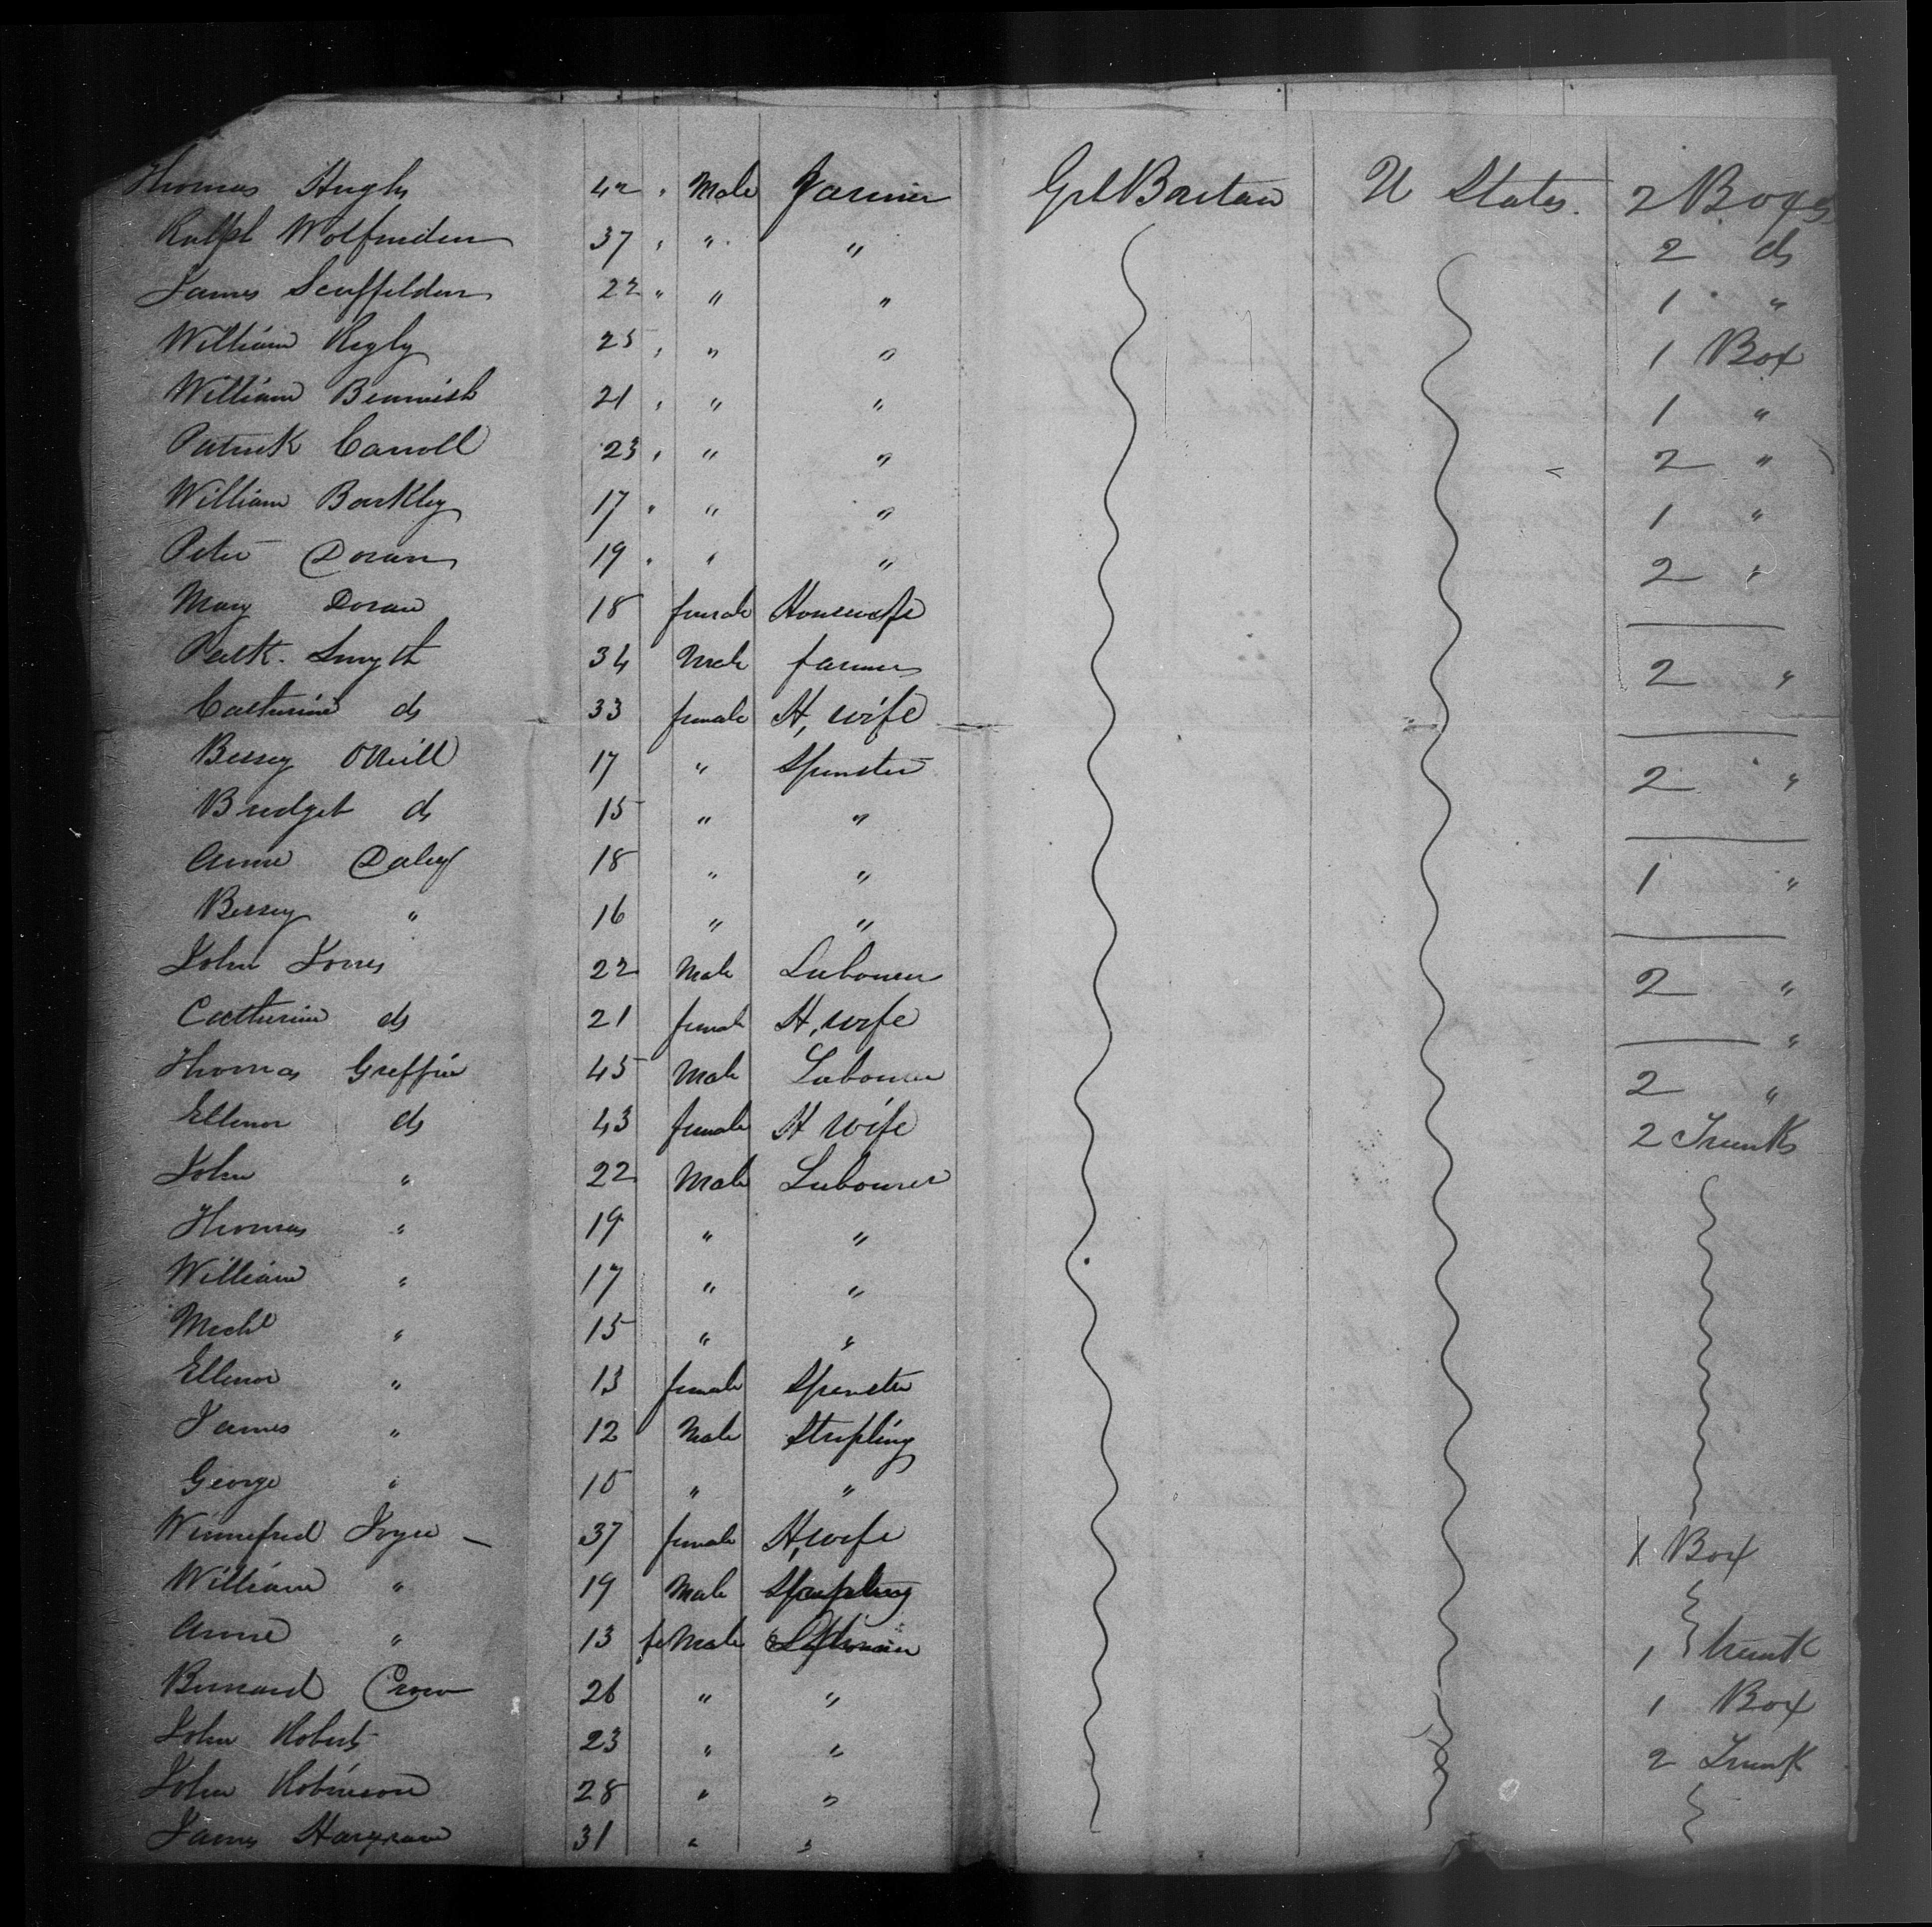 Thomas Hughs 42 " Male Farmer Grt Britain U States. 2 Boxes
Ralph Wolfenden 37 " " " 2 do
James Scuffelden 22 " " " 1 "
William Rigly 25 " " " 1 Box
William Beamish 21 " " " 1 "
Patrick Carroll 23 " " " 2 "
William Barkley 17 " " " 1 "
Peter Doran 19 " " " 2 "
Mary Doran 18 female Housewife
Patk. Smyth 34 Male farmer 2 "
Catherine do 33 female H, wife
Bessey ONeill 17 " Spinster 2 "
Bridget do 15 " "
Anne Daley 18 " " 1 "
Bessey " 16 " "
John Jones 22 Male Labourer 2 "
Catherine do 21 female H, wife "
Thomas Greffin 45 Male Labourer 2 "
Ellenor do 43 female H wife 2 Trunks
John " 22 Male Labourer
Thomas " 19 " "
William " 17 " "
Michl " 15 " "
Ellenor " 13 female Spinster
James " 12 Male Stripling
George " 10 " "
Winnefred Joyce 37 female H, wife 1 Box
William " 19 Male
Anne " 13 feMale 1 trunk
Bernard Crow 26 " " 1 Box
John Roberts 23 " " 2 Trunk
John Robinson 28 " "
James Hargrave 31 " "